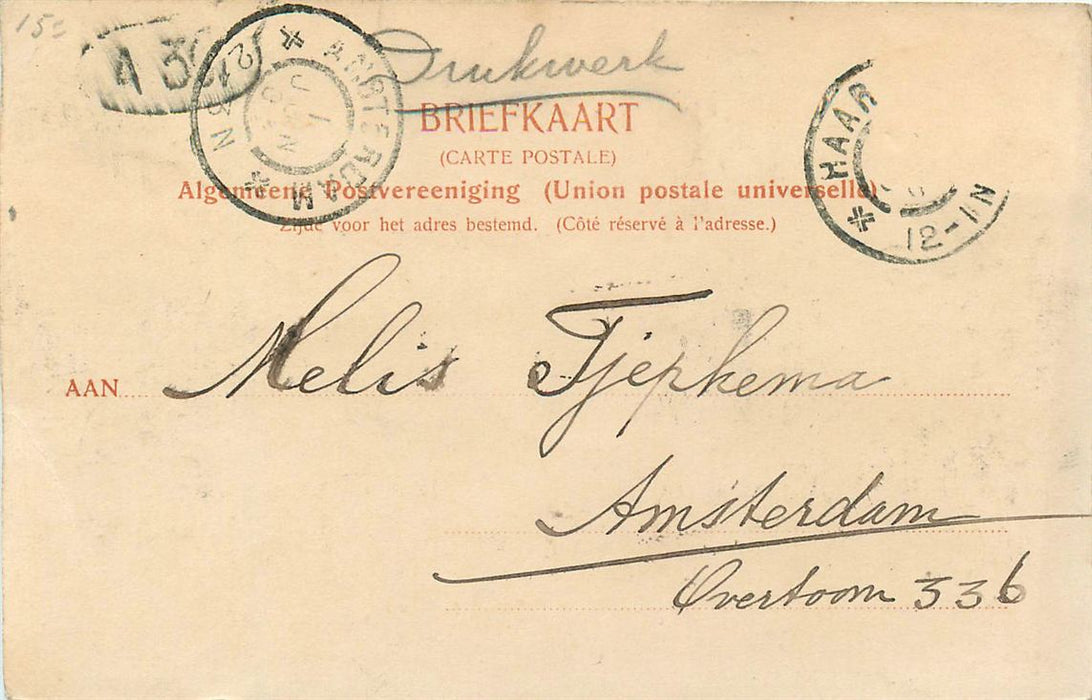 15=
Drukwerk
A 3
AMSTERDAM
2-3N
JUN
HAAR
12-1N
BRIEFKAART
(CARTE POSTALE)
Algemeene Postvereeniging (Union postale universelle)
Zijde voor het adres bestemd. (Côté réservé à l'adresse.)
AAN Melis Tjepkema
Amsterdam
Overtoom 336